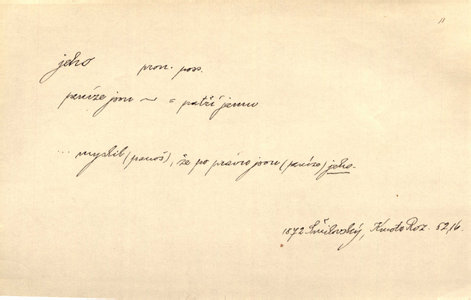 "
jeho pron. poss.
peníze jsou ~ = patří jemu
... myslil (panoš), že po právu jsou (peníze) jeho.
1872 Šmilovský, Kmotr Roz. 52/6.